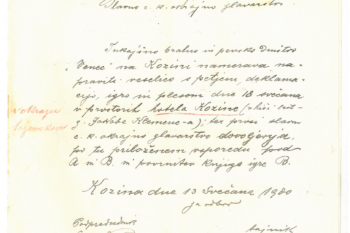 Slavno c. k. okrajno glavarstvo.
Tukajšno bralno in pevsko Društvo
"Venec" na Kozini namerava na-
praviti veselico s petjem deklama-
cijo, igro in plesom dne 18 svečana
v prostorih hotela Kozine
Jakoba Klemenc-a); ter prosi slavno
c. k. okrajno glavarstvo dovoljenja
po tu priloženem vsporedu pod
A in B in povrnitev knjige igre B.
Kozina dne 13 Svečana 1910
za odbor
Podpredsednik
tajnik